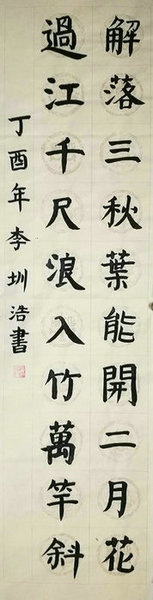 解落三秋葉能開二月花
過江千尺浪入竹萬竿斜
丁酉年李圳浩書